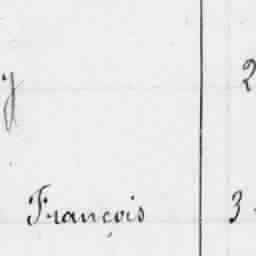 y 2
François 3